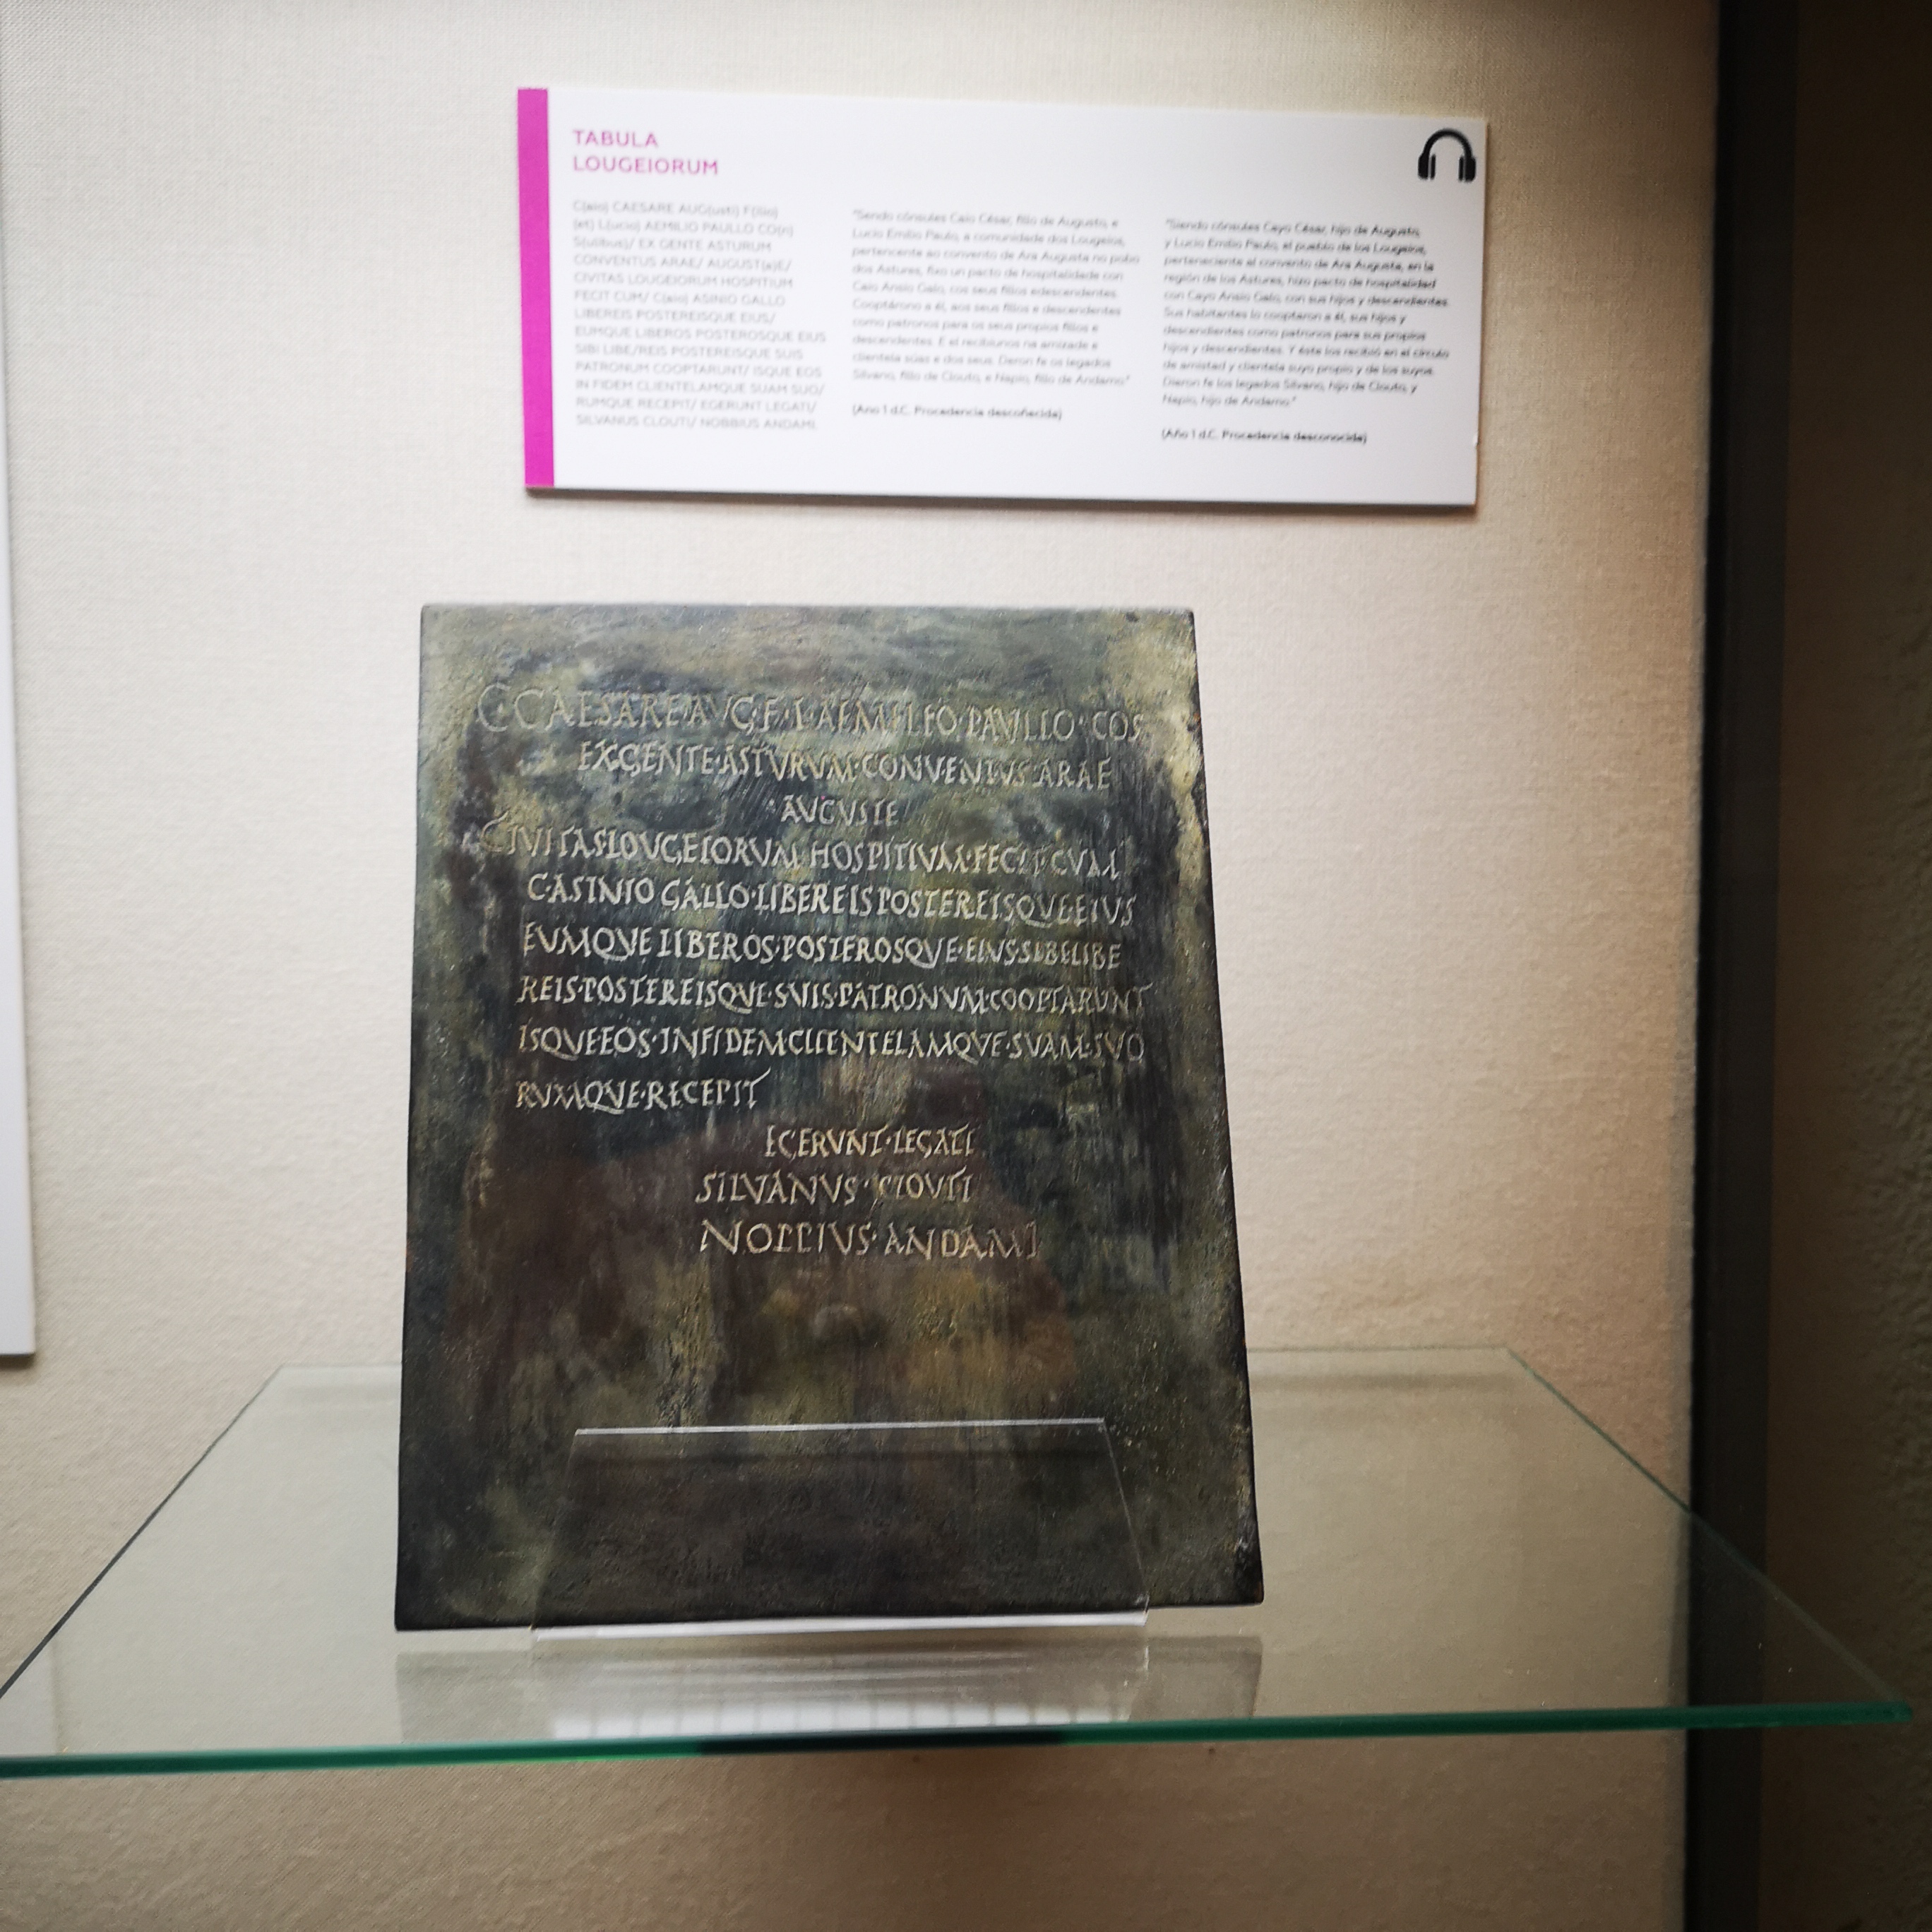 TABULA
LOUGEIORUM
C(aio) CAESARE AUG(usti) F(ilio)
(et) L(ucio) AEMILIO PAULLO CO(n)
S(ulibus)/ EX GENTE ASTURUM
CONVENTUS ARAE/ AUGUST(a)E/
CIVITAS LOUGEIORUM HOSPITIUM
FECIT CUM/ C(aio) ASINIO GALLO
LIBEREIS POSTEREISQUE EIUS/
EUMQUE LIBEROS POSTEROSQUE EIUS
SIBI LIBE/REIS POSTEREISQUE SUIS
PATRONUM COOPTARUNT/ ISQUE EOS
IN FIDEM CLIENTELAMQUE SUAM SUO/
RUMQUE RECEPIT/ EGERUNT LEGATI/
SILVANUS CLOUTI/ NOBBIUS ANDAMI.
"Sendo cónsules Caio César, fillo de Augusto, e
Lucio Emilio Paulo, a comunidade dos Lougeios,
pertencente ao convento de Ara Augusta no pobo
dos Astures, fixo un pacto de hospitalidade con
Caio Ansio Galo, cos seus fillos edescendentes.
Cooptárono a él, aos seus fillos e descendentes
como patronos para os seus propios fillos e
descendentes. E el recibiunos na amizade e
clientela súas e dos seus. Deron fe os legados
Silvano, fillo de Clouto, e Napio, fillo de Andamo."
(Ano 1 d.C. Procedencia descoñecida)
"Siendo cónsules Cayo César, hijo de Augusto,
y Lucio Emilio Paulo, el pueblo de los Lougeios,
perteneciente al convento de Ara Augusta, en la
región de los Astures, hizo pacto de hospitalidad
con Cayo Ansio Galo, con sus hijos y descendientes.
Sus habitantes lo cooptaron a él, sus hijos y
descendientes como patronos para sus propios
hijos y descendientes. Y éste los recibió en el círculo
de amistad y clientela suyo propio y de los suyos.
Dieron fe los legados Silvano, hijo de Clouto, y
Napio, hijo de Andamo."
(Año 1 d.C. Procedencia desconocida)
C·CAESARE·AVG·F·L·AEMILIO·PAVLLO·COS
EX·GENTE·ASTVRVM·CONVENTVS·ARAE
·AVGVSTE
CIVITAS·LOVGEIORVM·HOSPITIVM·FECIT·CVM
C·ASINIO GALLO·LIBEREIS POSTEREISQVE·EIVS
EVMQVE LIBEROS·POSTEROSQVE·EIVS·SIBI·LIBE
REIS·POSTEREISQVE·SVIS·PATRONVM·COOPTARVNT
ISQVE·EOS·IN FIDEM CLIENTELAMQVE·SVAM·SVO
RVMQVE·RECEPIT
EGERVNT·LEGATI
SILVANVS·CLOVTI
NOPPIVS·ANDAMI